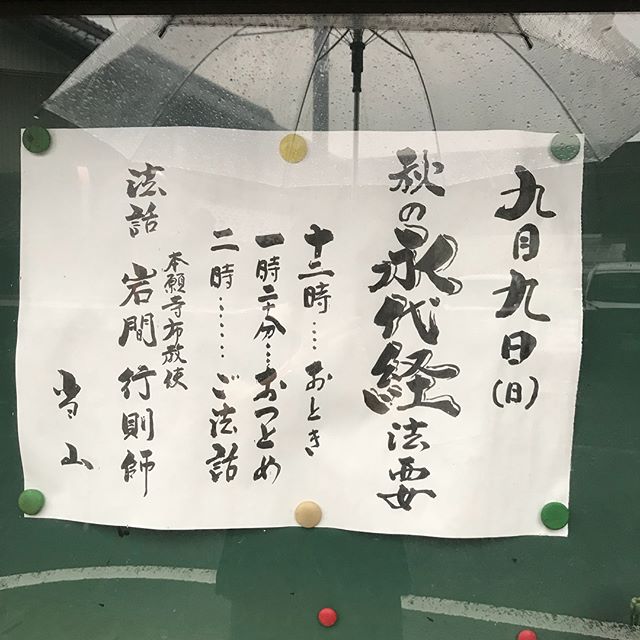 九月九日(日)
秋の永代経法要
十二時……おとき
一時三十分…おつとめ
二時……ご法話
本願寺布教使
法話 岩間行則師
当山